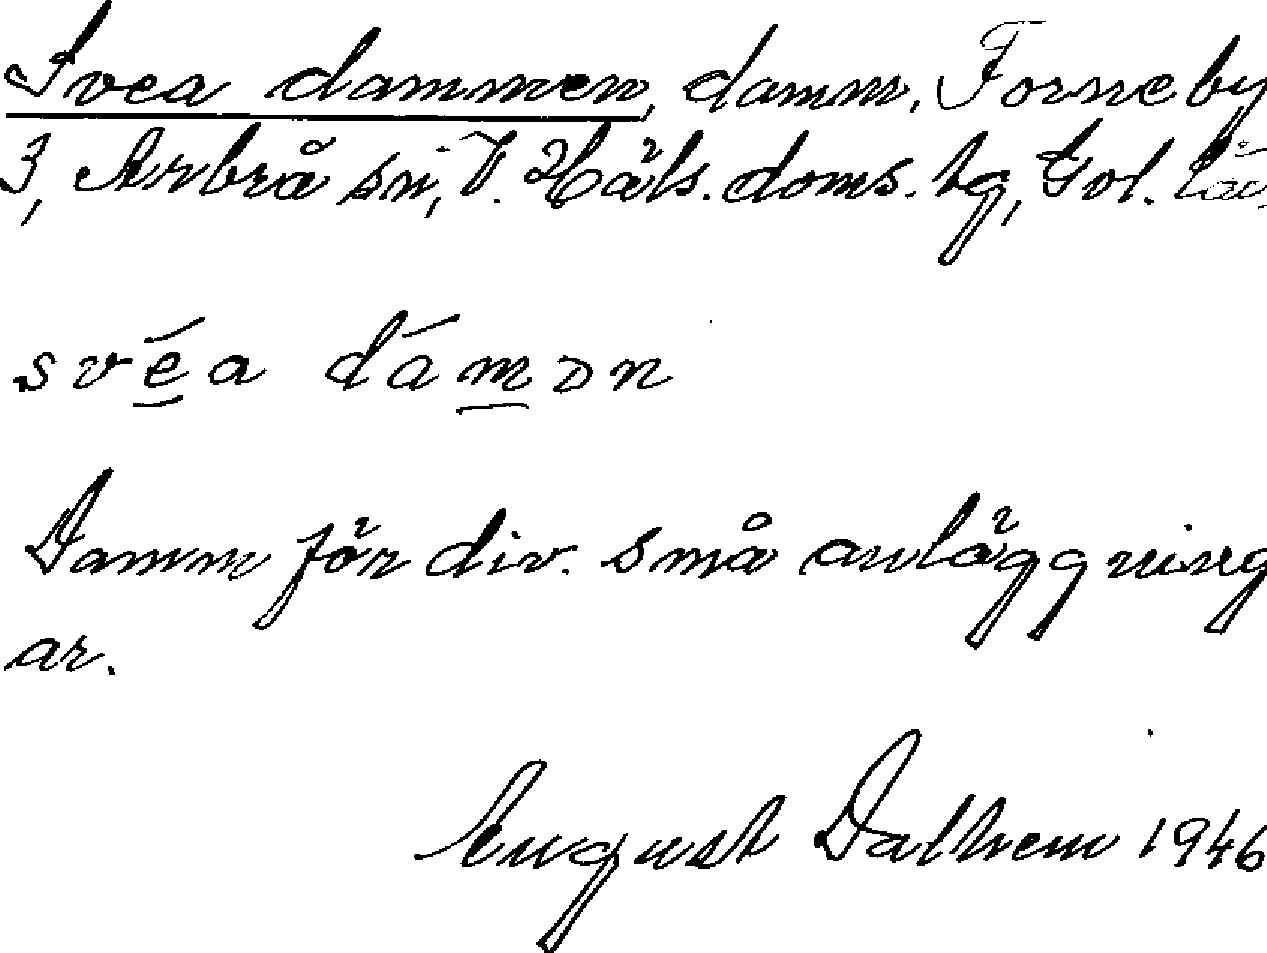 Svea dammen, damm, Forneby
3, Arbrå sn, V. Häls. doms. hg, Gvl. län
svéa dámən
Damm för div. små anläggning
ar.
August Dalhem 1946